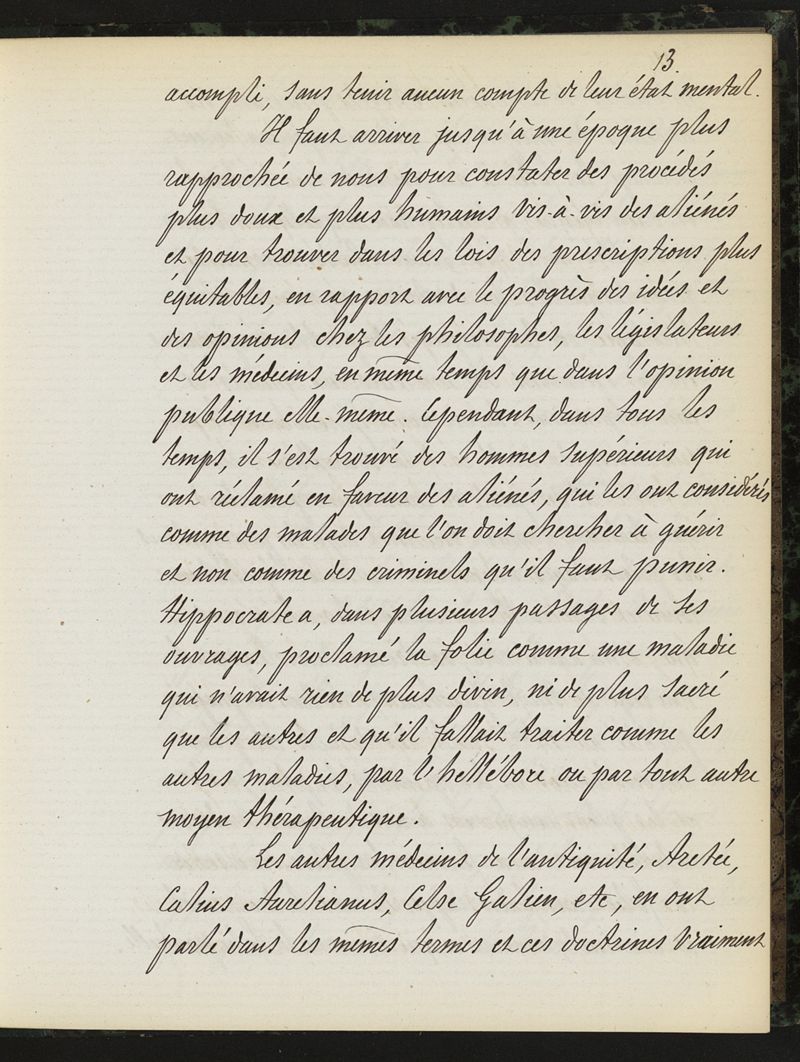 13
accompli, sans tenir aucun compte de leur état mental.
Il faut arriver jusqu'à une époque plus
rapprochée de nous pour constater des procédés
plus doux et plus humains vis-à-vis des aliénés
et pour trouver dans les lois des prescriptions plus
équitables, en rapport avec le progrès des idées et
des opinions chez les philosophes, les législateurs
et les médecins, en même temps que dans l'opinion
publique elle-même. Cependant, dans tous les
temps, il s'est trouvé des hommes supérieurs qui
ont réclamé en faveur des aliénés, qui les ont considérés
comme des malades que l'on doit chercher à guérir
et non comme des criminels qu'il faut punir.
Hippocrate a, dans plusieurs passages de ses
ouvrages, proclamé la folie comme une maladie
qui n'avait rien de plus divin, ni de plus sacré
que les autres et qu'il fallait traiter comme les
autres maladies, par l'hellébore ou par tout autre
moyen thérapeutique.
Les autres médecins de l'antiquité, Aretée,
Calius Aurelianus, Celse Galien, etc, en ont
parlé dans les mêmes termes et ces doctrines vraiment